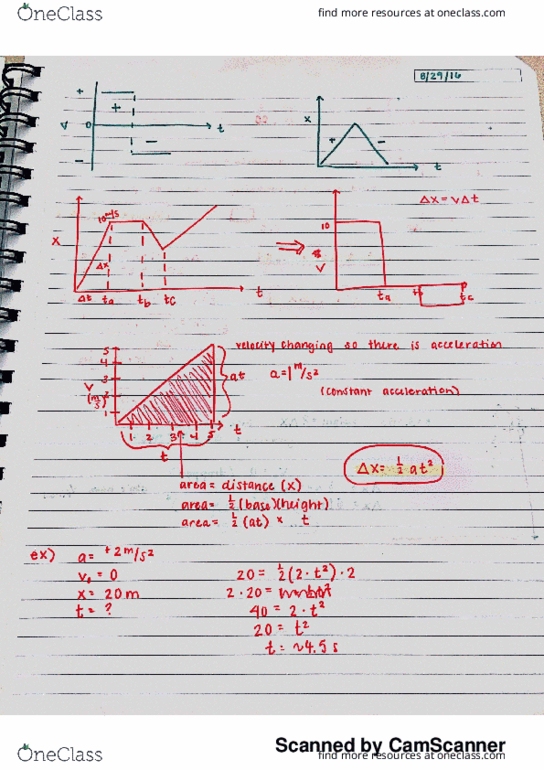 OneClass
find more resources at oneclass.com
8/29/16
+
+
V 0 t
-
-
x
+ -
t
Δx = vΔt
10 m/s
x
Δx
Δt ta tb tc t
⇒
10
V
ta tb tc
velocity changing so there is acceleration
a=1 m/s²
(constant acceleration)
5
4
3
2
1
V
(m/s)
at
1 2 3 4 5 t
t
Δx = ½ at²
area = distance (x)
area = ½ (base)(height)
area = ½ (at) × t
ex) a = +2 m/s²
v₀ = 0
x = 20 m
t = ?
20 = ½(2·t²)·2
2·20 =
40 = 2·t²
20 = t²
t = ~4.5 s
Scanned by CamScanner
OneClass
find more resources at oneclass.com